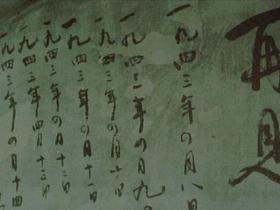 再見
一九四三年四月八日
一九四三年四月九
一九四三年四月十日
一九四三年四月十一日
一九四三年四月十二日
一九四三年四月十三日
九四三年四月十四